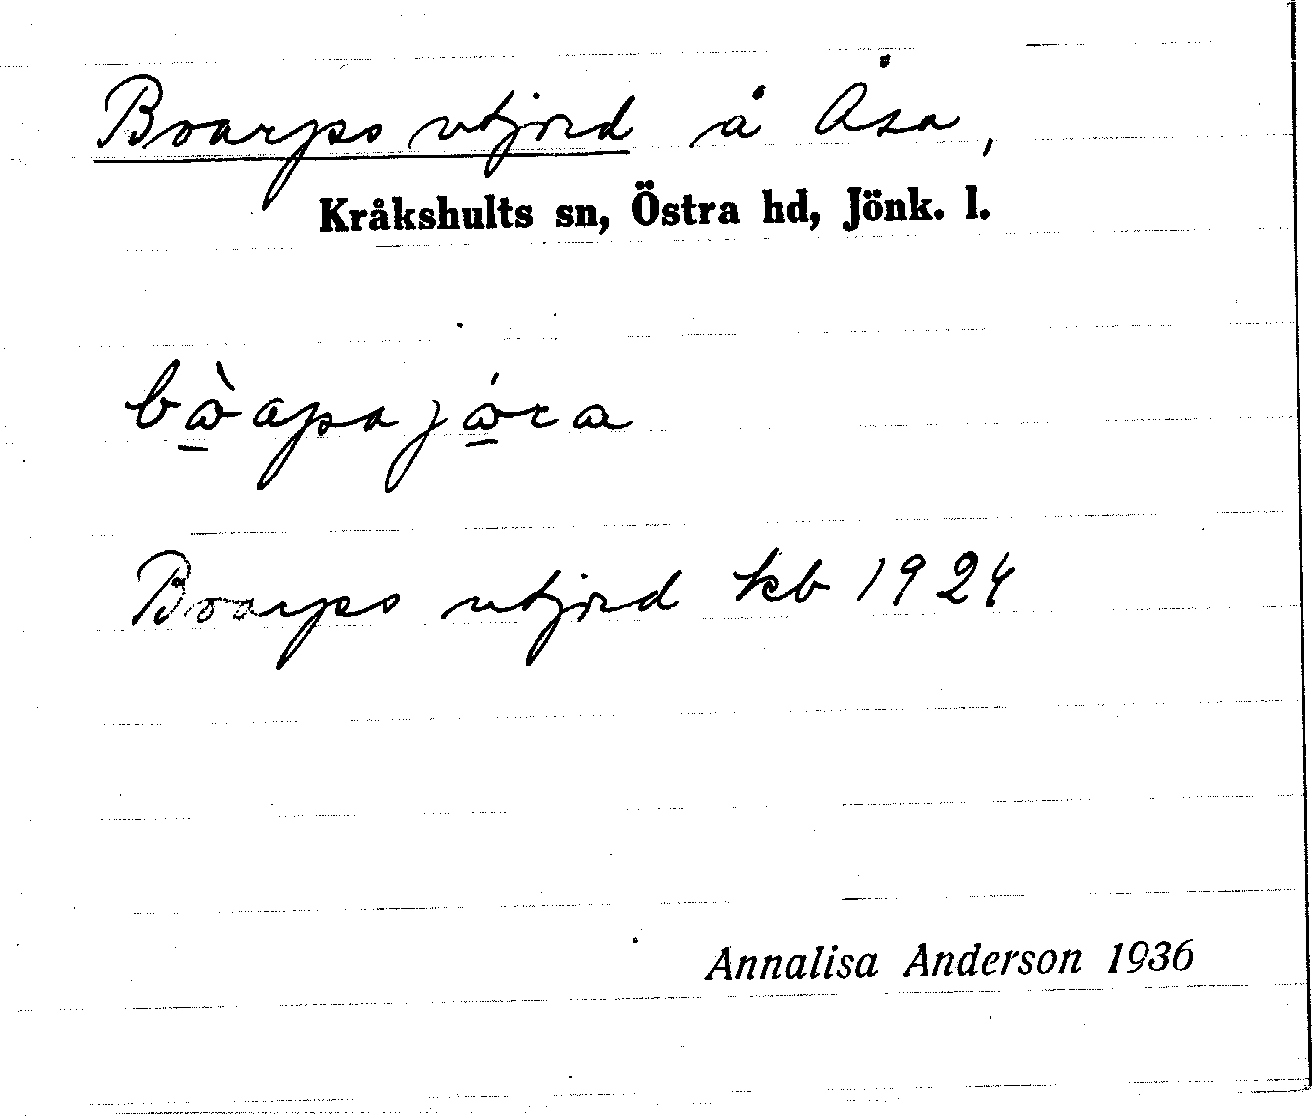 Boarps utjord å Åsa,
Kråkshults sn, Östra hd, Jönk. l.
Boarps utjord kb 1924
Annalisa Anderson 1936